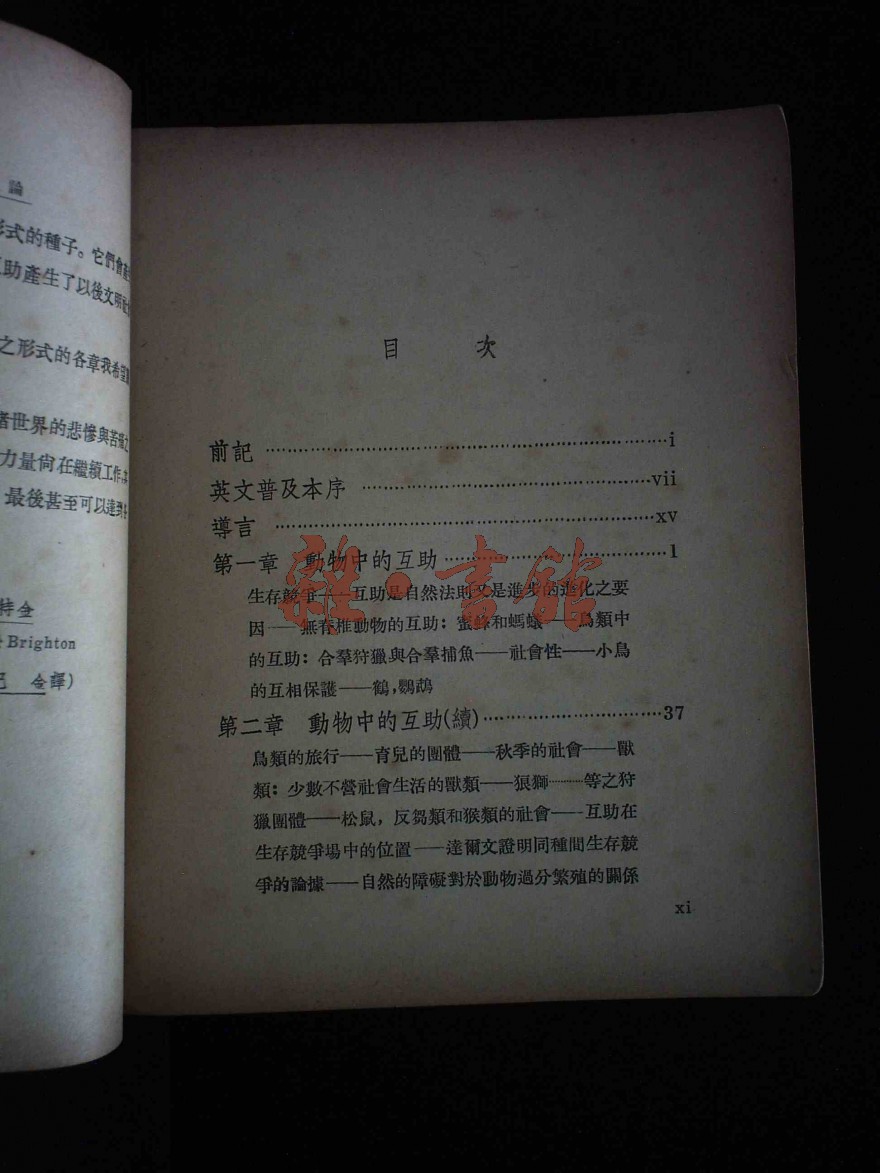 論
形式的種子。它們會產
助產生了以後文明
之形式的各章我希望
世界的悲慘與苦
力量尙在繼續工作
最後甚至可以達到
特金
Brighton
巴 金譯)
目 次
前記 ……………………………………………… i
英文普及本序 ……………………………………… vii
導言 ……………………………………………… xv
第一章 動物中的互助 ……………………………… 1
生存競爭——互助是自然法則又是進步的進化之要
因——無脊椎動物的互助：蜜蜂和螞蟻——鳥類中
的互助：合羣狩獵與合羣捕魚——社會性——小鳥
的互相保護——鶴，鸚鵡
第二章 動物中的互助(續) ………………………… 37
鳥類的旅行——育兒的團體——秋季的社會——獸
類：少數不營社會生活的獸類——狼獅………等之狩
獵團體——松鼠，反芻類和猴類的社會——互助在
生存競爭場中的位置——達爾文證明同種間生存競
爭的論據——自然的障礙對於動物過分繁殖的關係
xi
雜·書館